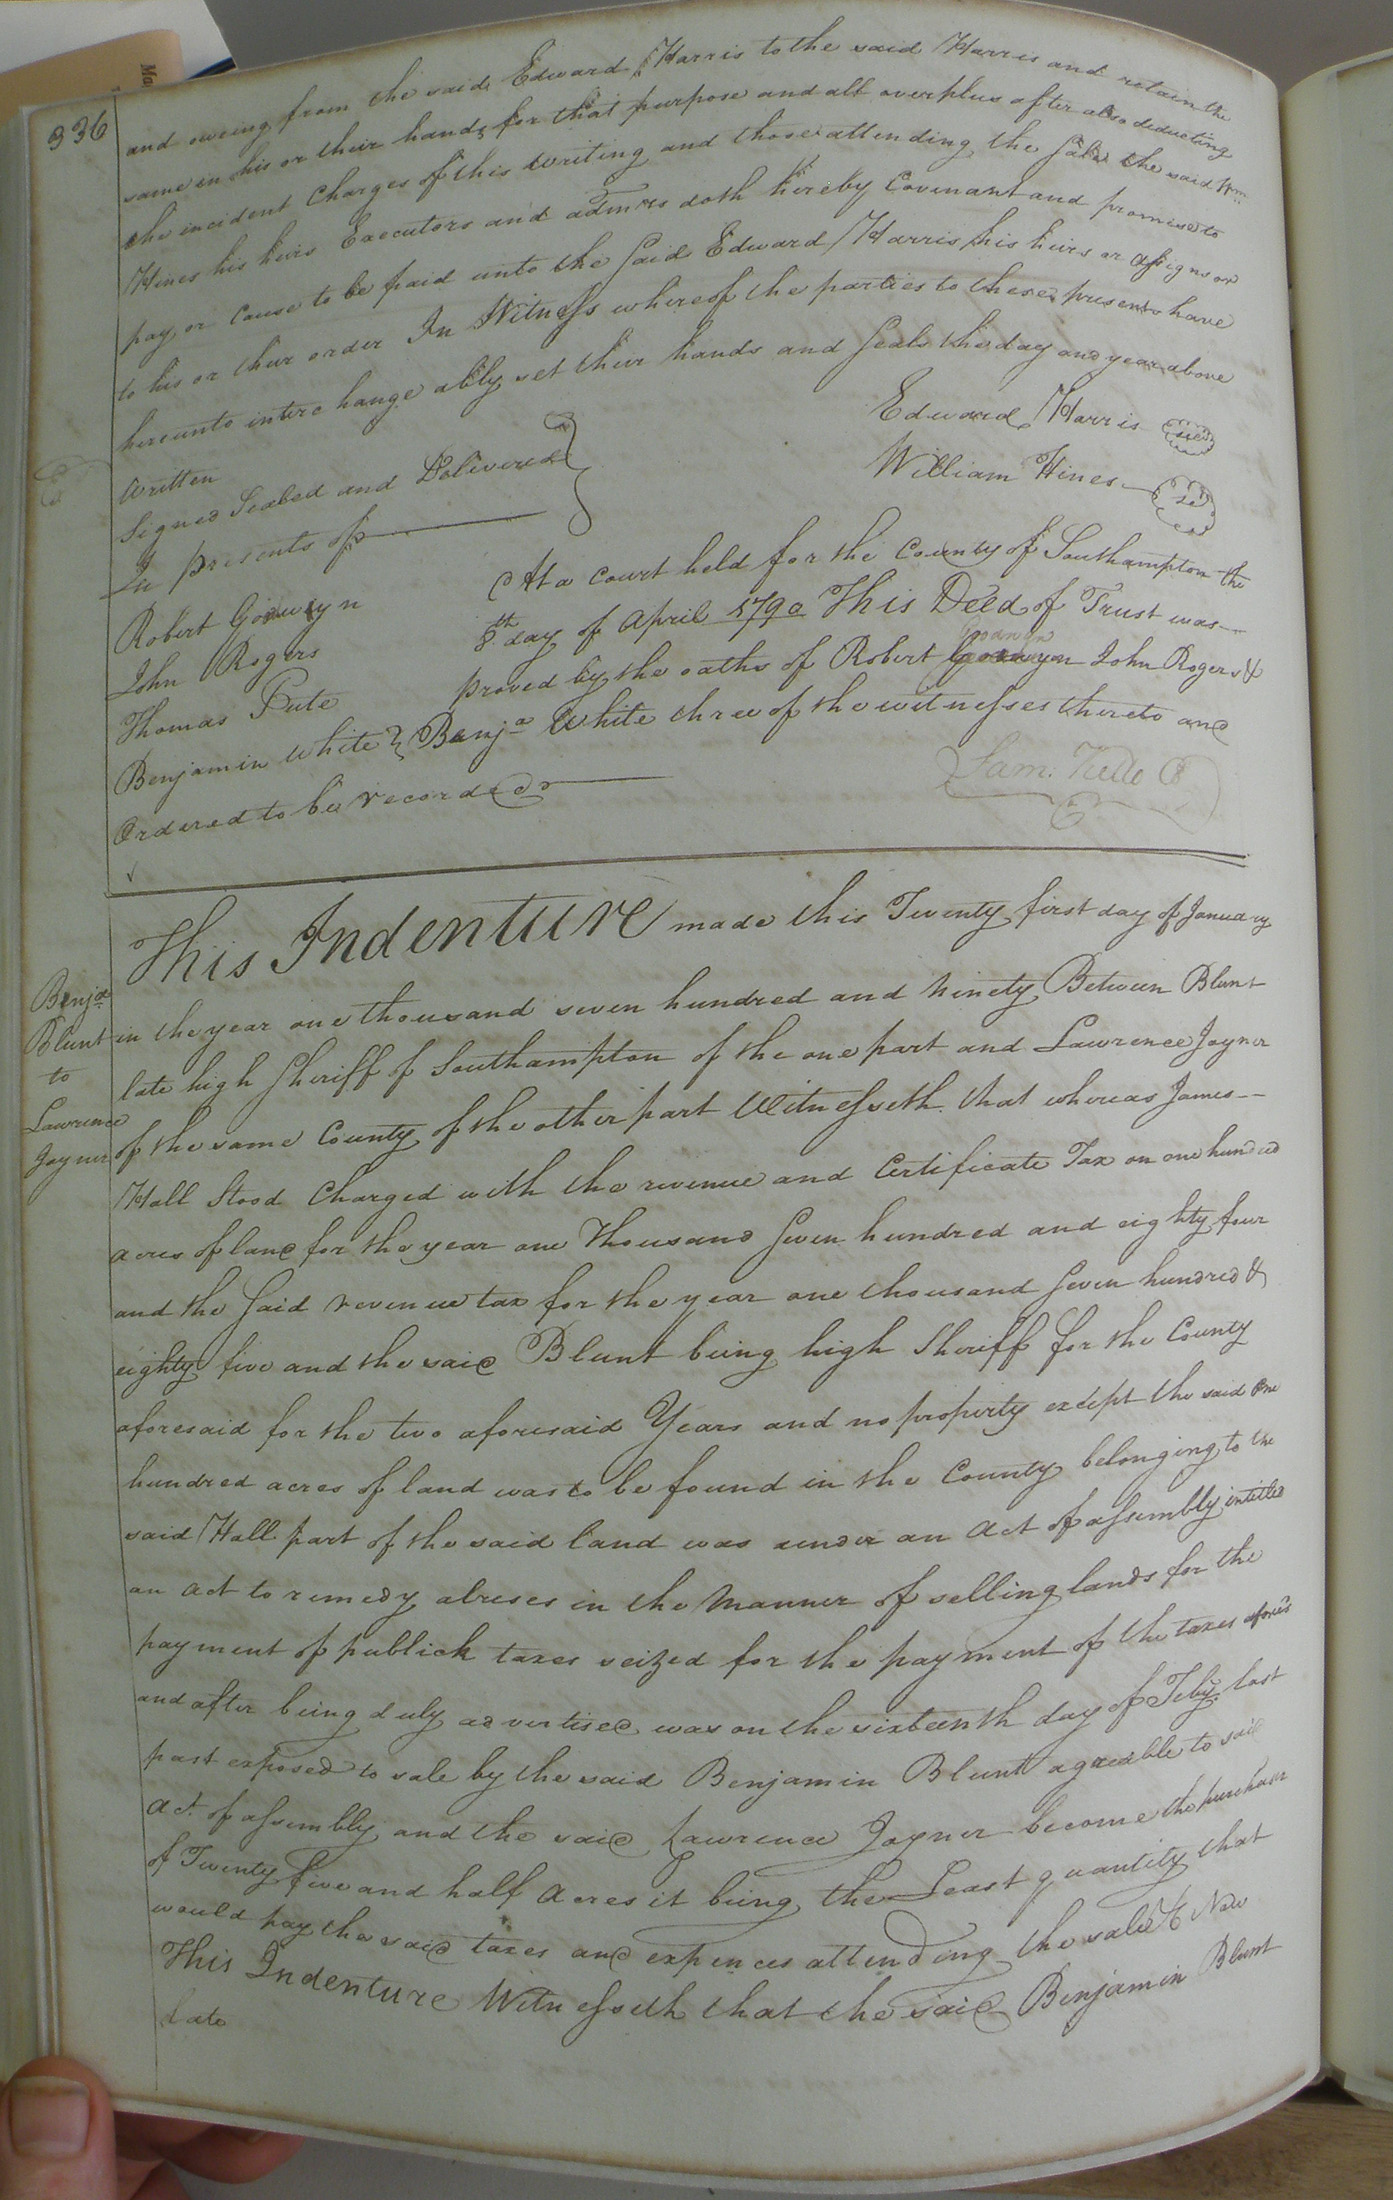 Ma
336
and owing from the said Edward Harris to the said Harris and retain the
same in his or their hands for that purpose and all overplus after also deducting
the incident Charges of this writing and those attending the Sale the said Wm
Hines his heirs Executors and admrs doth hereby Covenant and promise to
pay or Cause to be paid unto the Said Edward Harris his heirs or assigns or
to his or their order In Witness whereof the parties to these presents have
hereunto interchangeably set their hands and Seals the day and year above
written
Edward Harris seal
Signed Sealed and Delivered
William Hines
In presents of
Robert Goodwyn
John Rogers
Thomas Pate
Benjamin White
At a Court held for the County of Southampton the
8th day of April 1790 This Deed of Trust was
proved by the oaths of Robert Goodwyn John Rogers &
Benja White three of the witnesses thereto and
Ordered to be recorded
Sam. Kello C
This Indenture made this Twenty first day of January
Benja
Blunt
to
Lawrence
Joyner
in the year one thousand seven hundred and Ninety Between Blunt
late high Sheriff of Southampton of the one part and Lawrence Joyner
of the same County of the other part Witnesseth that whereas James
Hall Stood Charged with the revenue and Certificate Tax on one hundred
acres of land for the year one Thousand Seven hundred and eighty four
and the Said revenue tax for the year one thousand Seven hundred &
eighty five and the said Blunt being high Sheriff for the County
aforesaid for the two aforesaid Years and no property except the said one
hundred acres of land was to be found in the County belonging to the
said Hall part of the said land was under an Act of assembly intitled
an act to remedy abuses in the Manner of selling lands for the
payment of publick taxes seized for the payment of the taxes afores'd
and after being duly advertised was on the sixteenth day of Feby last
past exposed to sale by the said Benjamin Blunt agreeable to said
act of assembly and the said Lawrence Joyner become the purchaser
of Twenty five and half Acres it being the Least quantity that
would pay the said taxes and expences attending the sale Now
This Indenture Witnesseth that the said Benjamin Blunt
late